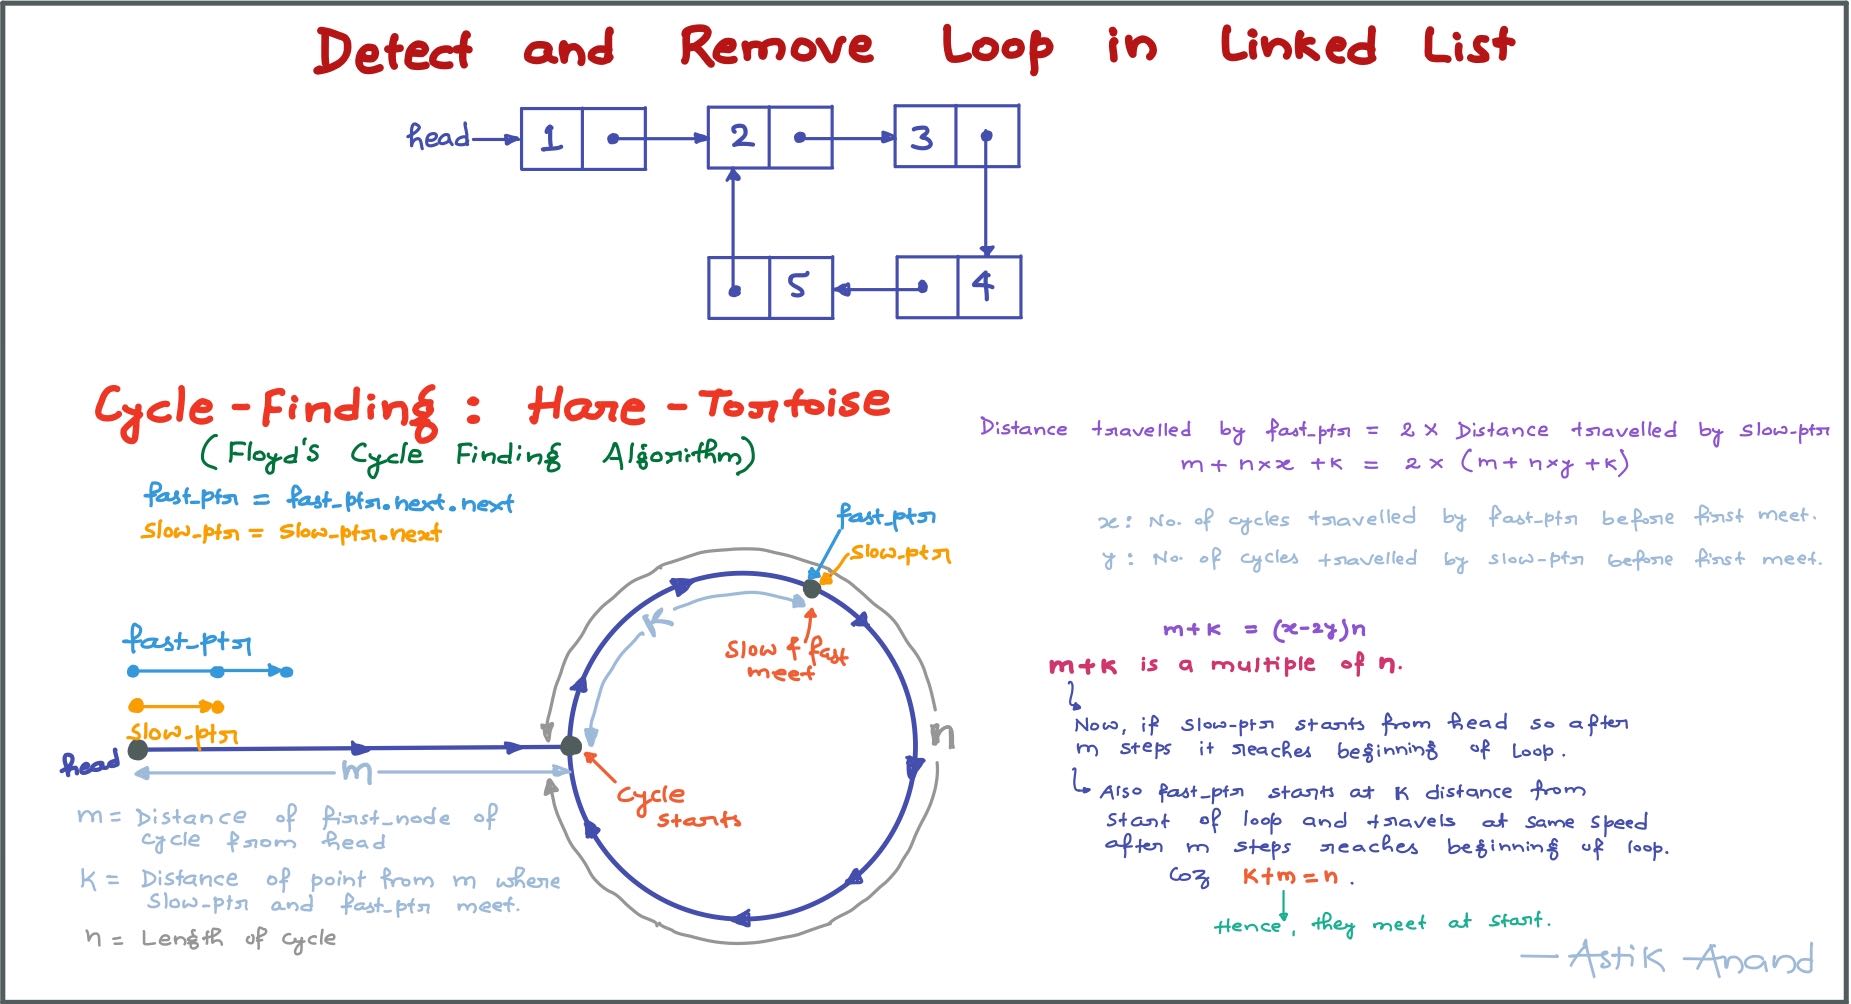 Detect and Remove Loop in Linked List
head
1
2
3
5
4
Cycle-Finding : Hare-Tortoise
(Floyd's Cycle Finding Algorithm)
fast_ptr = fast_ptr.next.next
slow_ptr = slow_ptr.next
fast_ptr
slow_ptr
K
Slow & fast
meet
n
fast_ptr
slow_ptr
head
m
Cycle
starts
m = Distance of first_node of
cycle from head
K = Distance of point from m where
slow_ptr and fast_ptr meet.
n = Length of cycle
Distance travelled by fast_ptr = 2 x Distance travelled by slow_ptr
m + n x x + K = 2 x (m + n x y + K)
x : No. of cycles travelled by fast_ptr before first meet.
y : No. of cycles travelled by slow_ptr before first meet.
m+K = (x-2y)n
m+K is a multiple of n.
Now, if slow_ptr starts from head so after
m steps it reaches beginning of Loop.
Also fast_ptr starts at K distance from
start of loop and travels at same speed
after m steps reaches beginning of loop.
Coz K+m=n.
Hence, they meet at start.
— Astik Anand